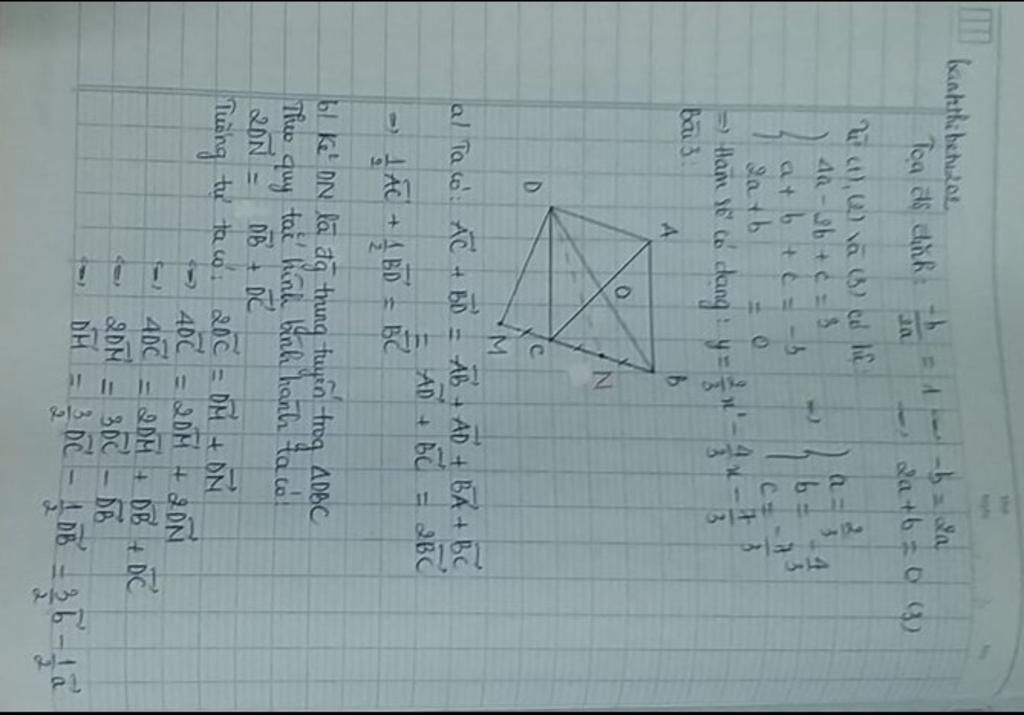 Toạ độ đỉnh: -b/2a = 1 ⟶ -b = 2a
⟶ 2a + b = 0 (3)
Từ (1), (2) và (3) có hệ:
{ 4a - 2b + c = 3
a + b + c = -3
2a + b = 0
⟶ { a = 2/3
b = -4/3
c = -7/3
=> Hàm số có dạng: y = 2/3 x² - 4/3 x - 7/3
Bài 3:
A
B
O
D
C
N
M
a/ Ta có: AC→ + BD→ = AB→ + AD→ + BA→ + BC→
= AD→ + BC→ = 2BC→
=> 1/2 AC→ + 1/2 BD→ = BC→
b/ Kẻ DN là đg trung tuyến trog ΔDBC
Theo quy tắc hình bình hành ta có:
2DN→ = DB→ + DC→
Tương tự ta có: 2DC→ = DM→ + DN→
<=> 4DC→ = 2DM→ + 2DN→
<=> 4DC→ = 2DM→ + DB→ + DC→
<=> 2DM→ = 3DC→ - DB→
<=> DM→ = 3/2 DC→ - 1/2 DB→ = 3/2 b→ - 1/2 a→